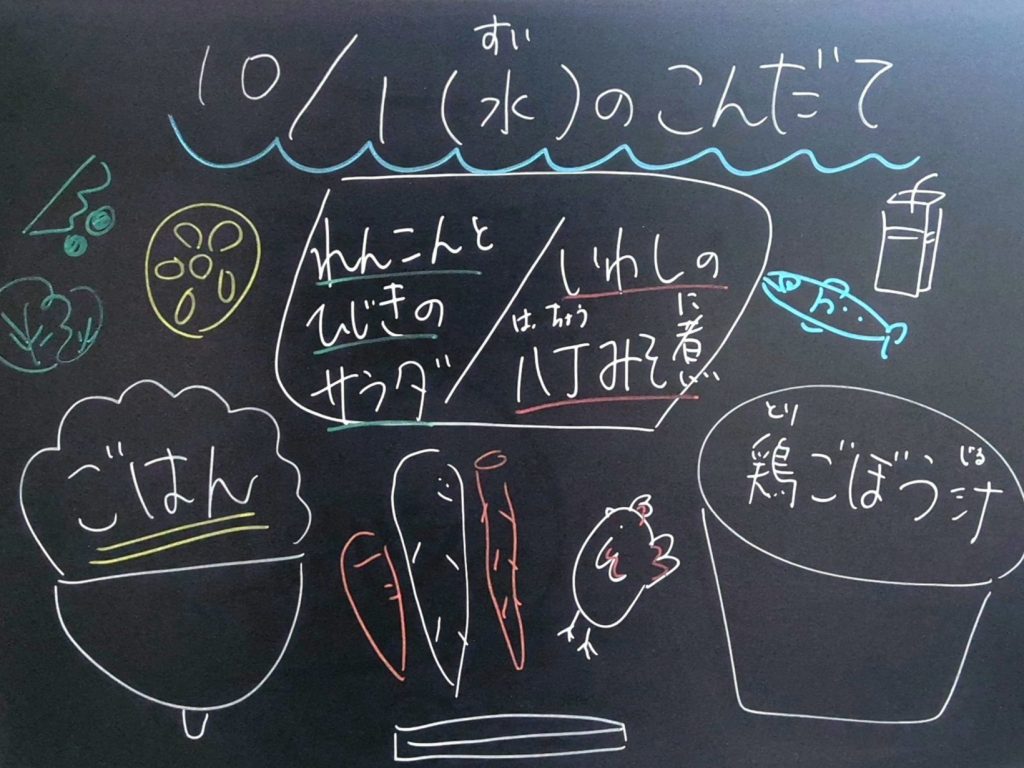 すい
10/1(水)のこんだて
れんこんと
ひじきの
サラダ
いわしの
はっちょう に
八丁みそ煮
ごはん
とり じる
鶏ごぼう汁